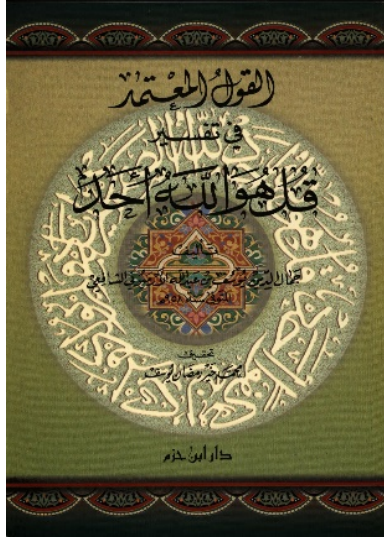 القول المعتمد
في تفسير
قل هو الله أحد
تأليف
جمال الدين يوسف بن عبد الله الأرميوني الشافعي
المتوفى سنة ٩٥٨هـ
تحقيق
محمد خير رمضان يوسف
دار ابن حزم